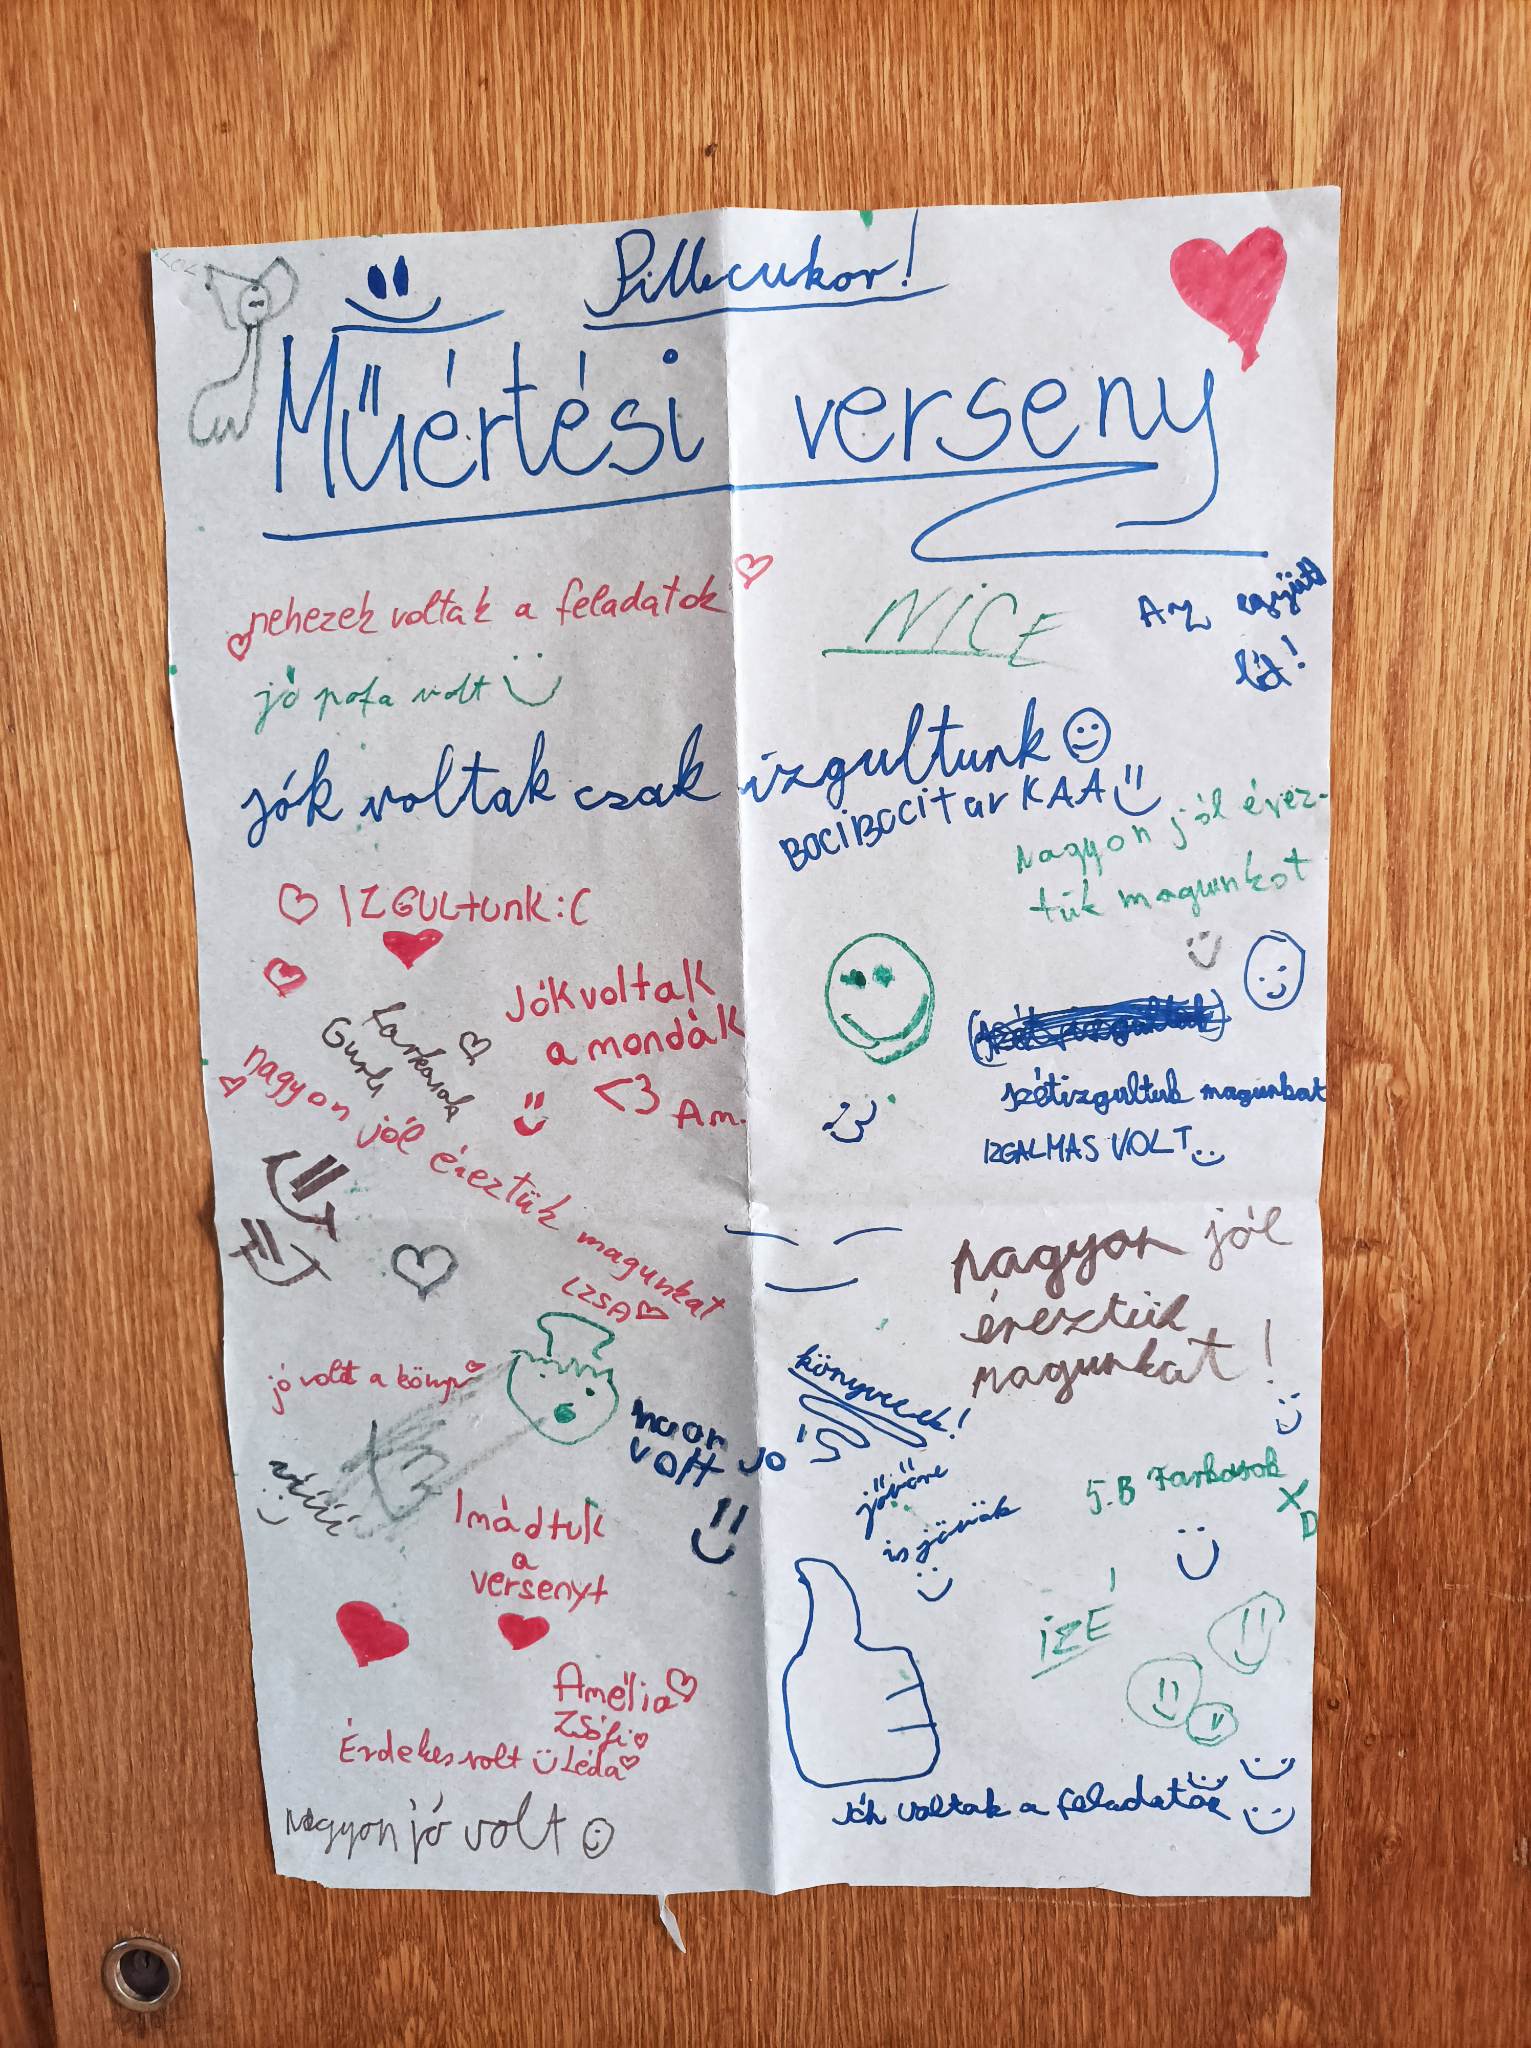 Pillecukor!
Műértési verseny
nehezek voltak a feladatok
NICE
Az együtt
lét!
jó pofa volt
jók voltak csak izgultunk
BOCIBOCItarKAA
nagyon jól érez-
tük magunkat
IZGULtunk:C
Jók voltak
a mondák
<3 Am.
farkasok
Gurls
nagyon jól éreztük magunkat
IZSA
:3
szétizgultuk magunkat
IZGALMAS VOLT
nagyon jól
éreztük
magunkat!
jó volt a könyv
könyvecsek!
naon
volt jó
Imádtuk
a
versenyt
jövőre
is jövök
5.B Farkasok
XD
IZÉ
Amélia
Zsófi
Érdekes volt Léda
Nagyon jó volt
Jók voltak a feladatok